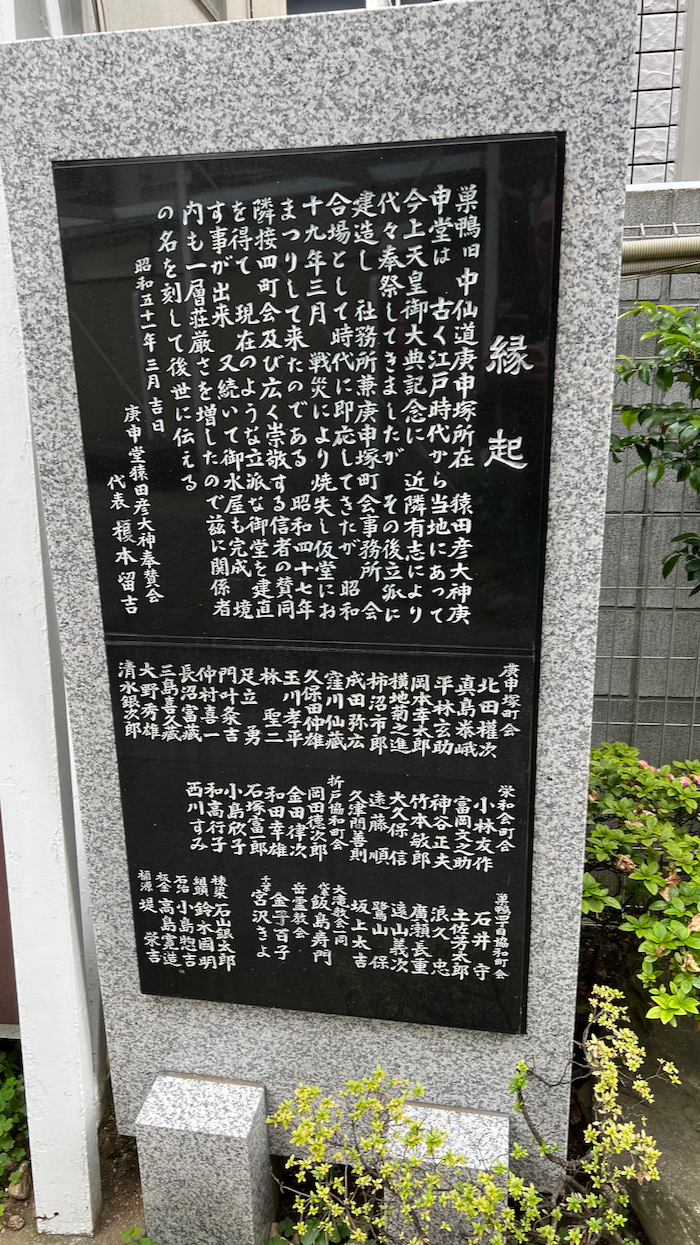 縁起
巣鴨旧中仙道庚申塚所在　猿田彦大神庚
申堂は　古く江戸時代から当地にあって
代々奉祭してきましたが　その後立派に
今上天皇御大典記念に　近隣有志により
建造し　社務所兼庚申塚町会事務所　会
合場として時代に即応してきたが　昭和
十九年三月　戦災により焼失し仮堂にお
まつりして来たのである　昭和四十七年
隣接四町会及び広く崇敬する信者の賛同
を得て　現在のような立派な御堂を建直
す事が出来　又続いて御水屋も完成　境
内も一層荘厳さを増したので茲に関係者
の名を刻して後世に伝える
昭和五十一年三月吉日
庚申堂猿田彦大神奉賛会
代表　榎本留吉
庚申塚町会
北田権次
真島泰峨
平林玄助
岡本幸太郎
横地菊之進
柿沼市郎
成田弥広
窪川仙蔵
久保田仲雄
玉川孝平
林　聖二
足立　勇
門叶粂吉
仲村喜一
長沼富蔵
三島喜久蔵
大野秀雄
清水銀次郎
栄和会町会
小林友作
富岡文之助
神谷正夫
竹本敏郎
大久保信
遠藤　順
久津間善則
折戸協和町会
岡田徳次郎
金田律次
和田幸雄
石塚富一郎
小島欣子
和高行子
西川すみ
巣鴨四丁目協和町会
石井　守
土佐芳太郎
浪久　忠
廣瀬長重
遠山義次
鷺山　保
坂上太吉
大滝教会一同
飯島寿門
岳霊教会
金子百子
千葉　宮沢きよ
棟梁　石山銀太郎
組頭　鈴木國明
石治　小島惣吉
板金　高島寛造
桶源　堤　栄吉